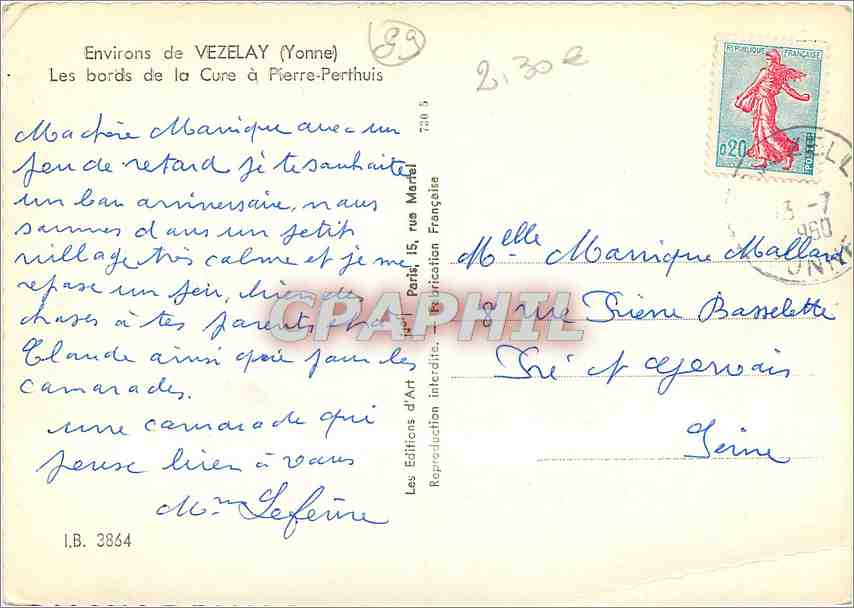 Environs de VEZELAY (Yonne)
Les bords de la Cure à Pierre-Perthuis
99
2,30€
REPUBLIQUE FRANÇAISE
0,20
POSTES
13 -7
1960
YONNE
Ma chère Monique avec un
peu de retard je te souhaite
un bon anniversaire, nous
sommes dans un petit
village très calme et je me
repose un peu, bien des
choses à tes parents et à
Claude ainsi que pour les
camarades.
une camarade qui
pense bien à vous
Mme Lefèvre
I.B. 3864
Les Editions d'Art Paris, 15, rue Martel 730 5
Reproduction interdite. — Fabrication Française
CPAPHIL
Melle Monique Mallard
8 rue Pierre Basselette
Pré St Gervais
Seine